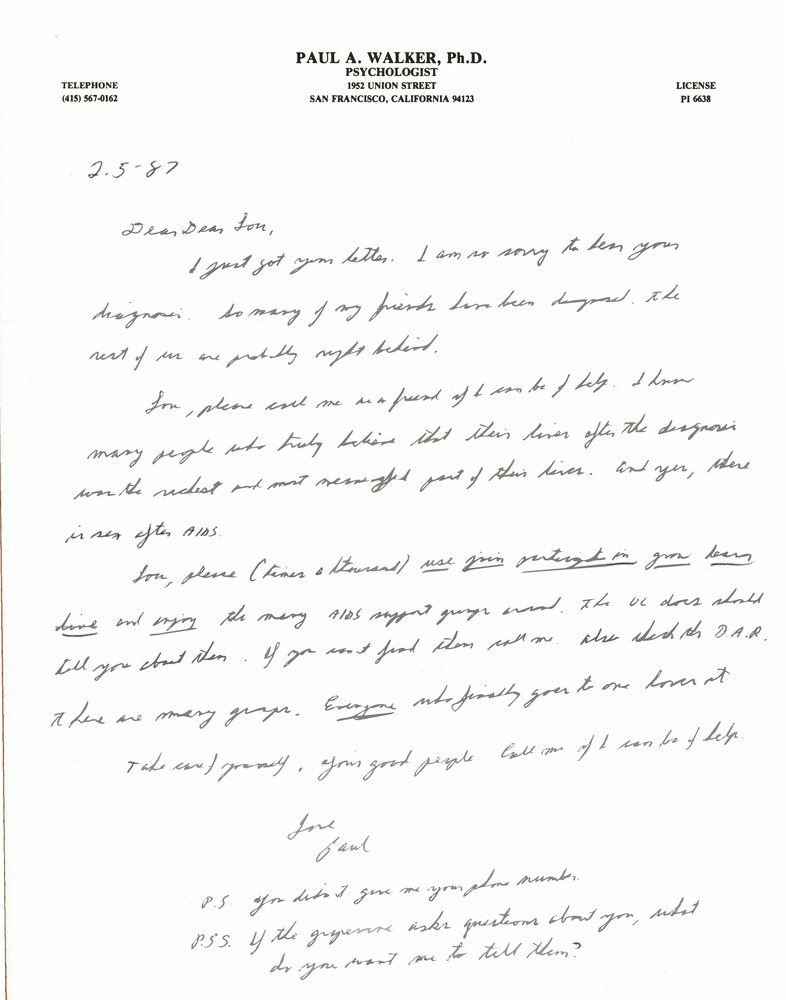 PAUL A. WALKER, Ph.D.
PSYCHOLOGIST
TELEPHONE 1952 UNION STREET LICENSE
(415) 567-0162 SAN FRANCISCO, CALIFORNIA 94123 PI 6638
2.5-87
Dear Dear Lou,
I just got your letter. I am so sorry to hear your
diagnosis. So many of my friends have been diagnosed. The
rest of us are probably right behind.
Lou, please call me as a friend if I can be of help. I know
many people who truly believe that their lives after the diagnosis
was the richest and most meaningful part of their lives. And yes, there
is sex after AIDS.
Lou, please (times a thousand) use join participate in grow learn
live and enjoy the many AIDS support groups around. The UC docs should
tell you about them. If you can't find them call me. Also check the B.A.R.
There are many groups. Everyone who finally goes to one loves it
Take care of yourself. You're good people. Call me if I can be of help.
Love
Paul
P.S. You didn't give me your phone number.
PSS. If the grapevine asks questions about you, what
do you want me to tell them?